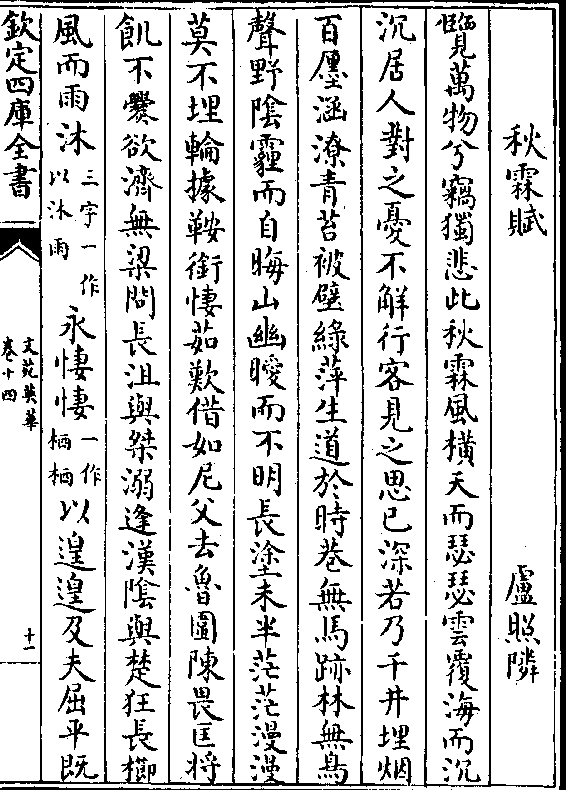 秋霖賦　盧照隣
覽萬物兮竊獨悲此秋霖風橫天而瑟瑟雲覆海而沉
沉居人對之憂不解行客見之思已深若乃千井埋烟
百廛涵潦青苔被壁綠萍生道於時巷無馬跡林無鳥
聲野陰霾而自晦山幽曖而不明長塗未半茫茫漫漫
莫不埋輪據鞍銜悽茹歎借如尼父去魯圍陳畏匡將
飢不爨欲濟無梁問長沮與桀溺逢漢陰與楚狂長櫛
風而雨沐三字一作以沐雨永悽悽一作栖栖以遑遑及夫屈平既
欽定四庫全書
文苑英華
卷十四
十一